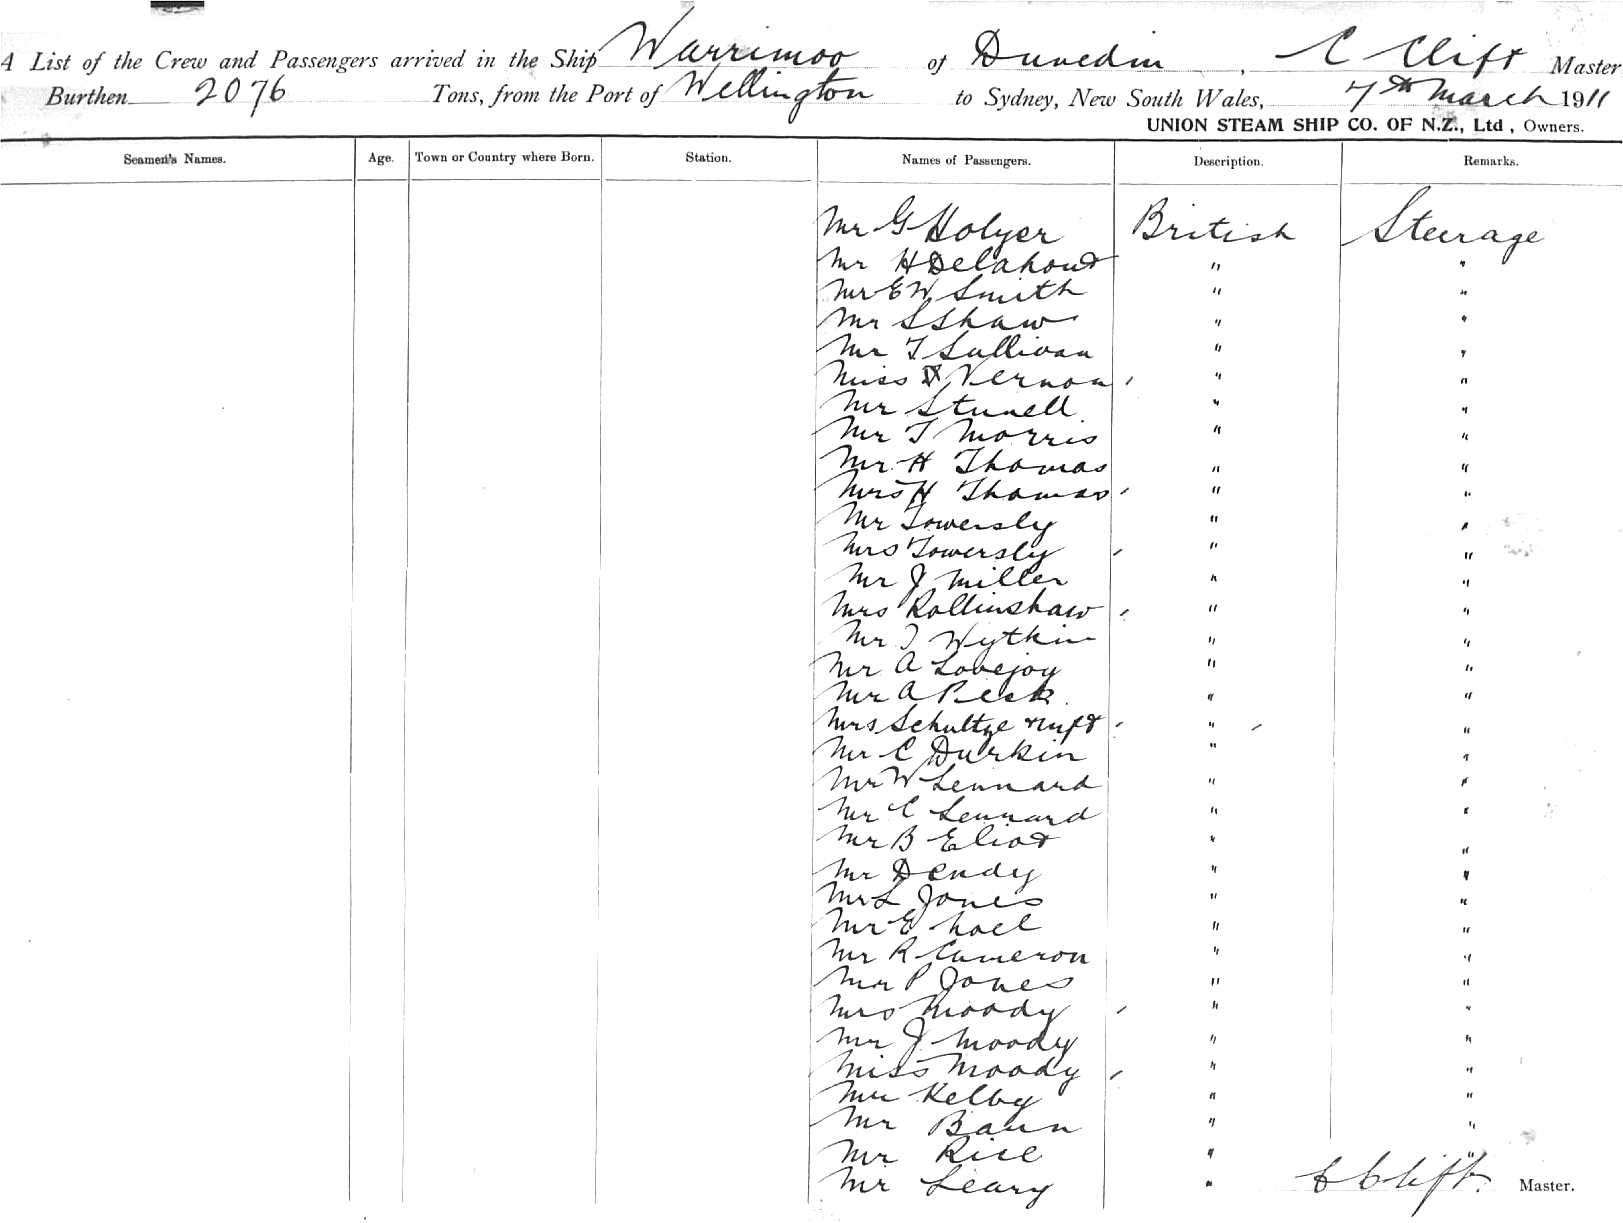 A List of the Crew and Passengers arrived in the Ship Warrimoo of Dunedin, C Clift Master
Burthen 2076 Tons, from the Port of Wellington to Sydney, New South Wales, 7th March 1911
UNION STEAM SHIP CO. OF N.Z., Ltd, Owners.
Seamen's Names. Age. Town or Country where Born. Station. Names of Passengers. Description. Remarks.
Mr G Holyer British Steerage
Mr H Delahout " "
Mr E W Smith " "
Mr S Shaw " "
Mr T Sullivan " "
Miss Vernon " "
Mr Stunell " "
Mr T Morris " "
Mr H Thomas " "
Mrs H Thomas " "
Mr Towersly " "
Mrs Towersly " "
Mr J Miller " "
Mrs Rollinshaw " "
Mr Wytkin " "
Mr A Lovejoy " "
Mr A Peck " "
Mrs Schultze & inft " "
Mr C Durkin " "
Mr W Lennard " "
Mr C Lennard " "
Mr B Eliot " "
Mr Dendy " "
Mr L Jones " "
Mr E Noel " "
Mr R Cameron " "
Mr P Jones " "
Mrs Moody " "
Mr J Moody " "
Miss Moody " "
Mr Kelby " "
Mr Baun " "
Mr Rice " "
Mr Leary " C Clift Master.